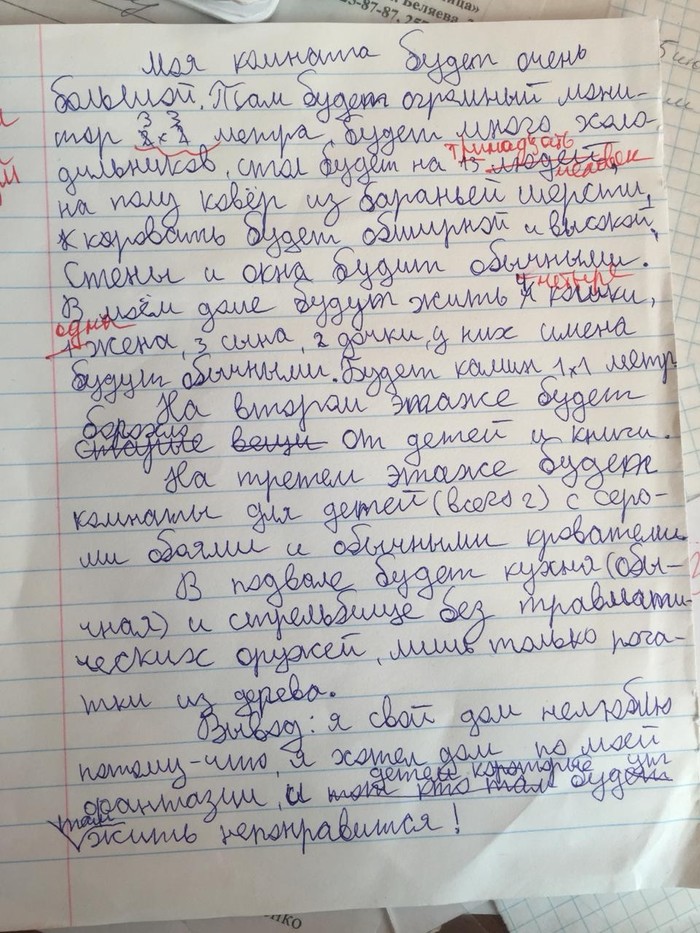 ница»
Ул. Беляева,
23-87-87, 25
Моя комната будет очень
большой. Там будет огромный мони-
тор 3 x 3 метра, будет много холо-
тринадцать
дильников, стол будет на 13 людей, человек
на полу ковёр из бараньей шерсти,
коровать будет обширной и высокой,
Стены и окна будит обычными.
четыре
В моём доме будут жить 4 кошки,
одна
1 жена, 3 сына, 2 дочки, у них имена
будут обычными. Будет камин 1x1 метр.
На втором этаже будет
барахло
старые вещи от детей и книги.
На третем этаже будет
комнаты для детей (всего 2) с серо-
ми обаями и обычными кроватеми
В подвале будет кухня (обы-
чная) и стрельбище без травмати-
ческих оружей, лишь только рога-
тки из дерева.
Вывод: я свой дом нелюблю
потому-что, я хотел дом по моей
детем которые
фантазии, и тем кто там будет
там
жить непонравится!
енко